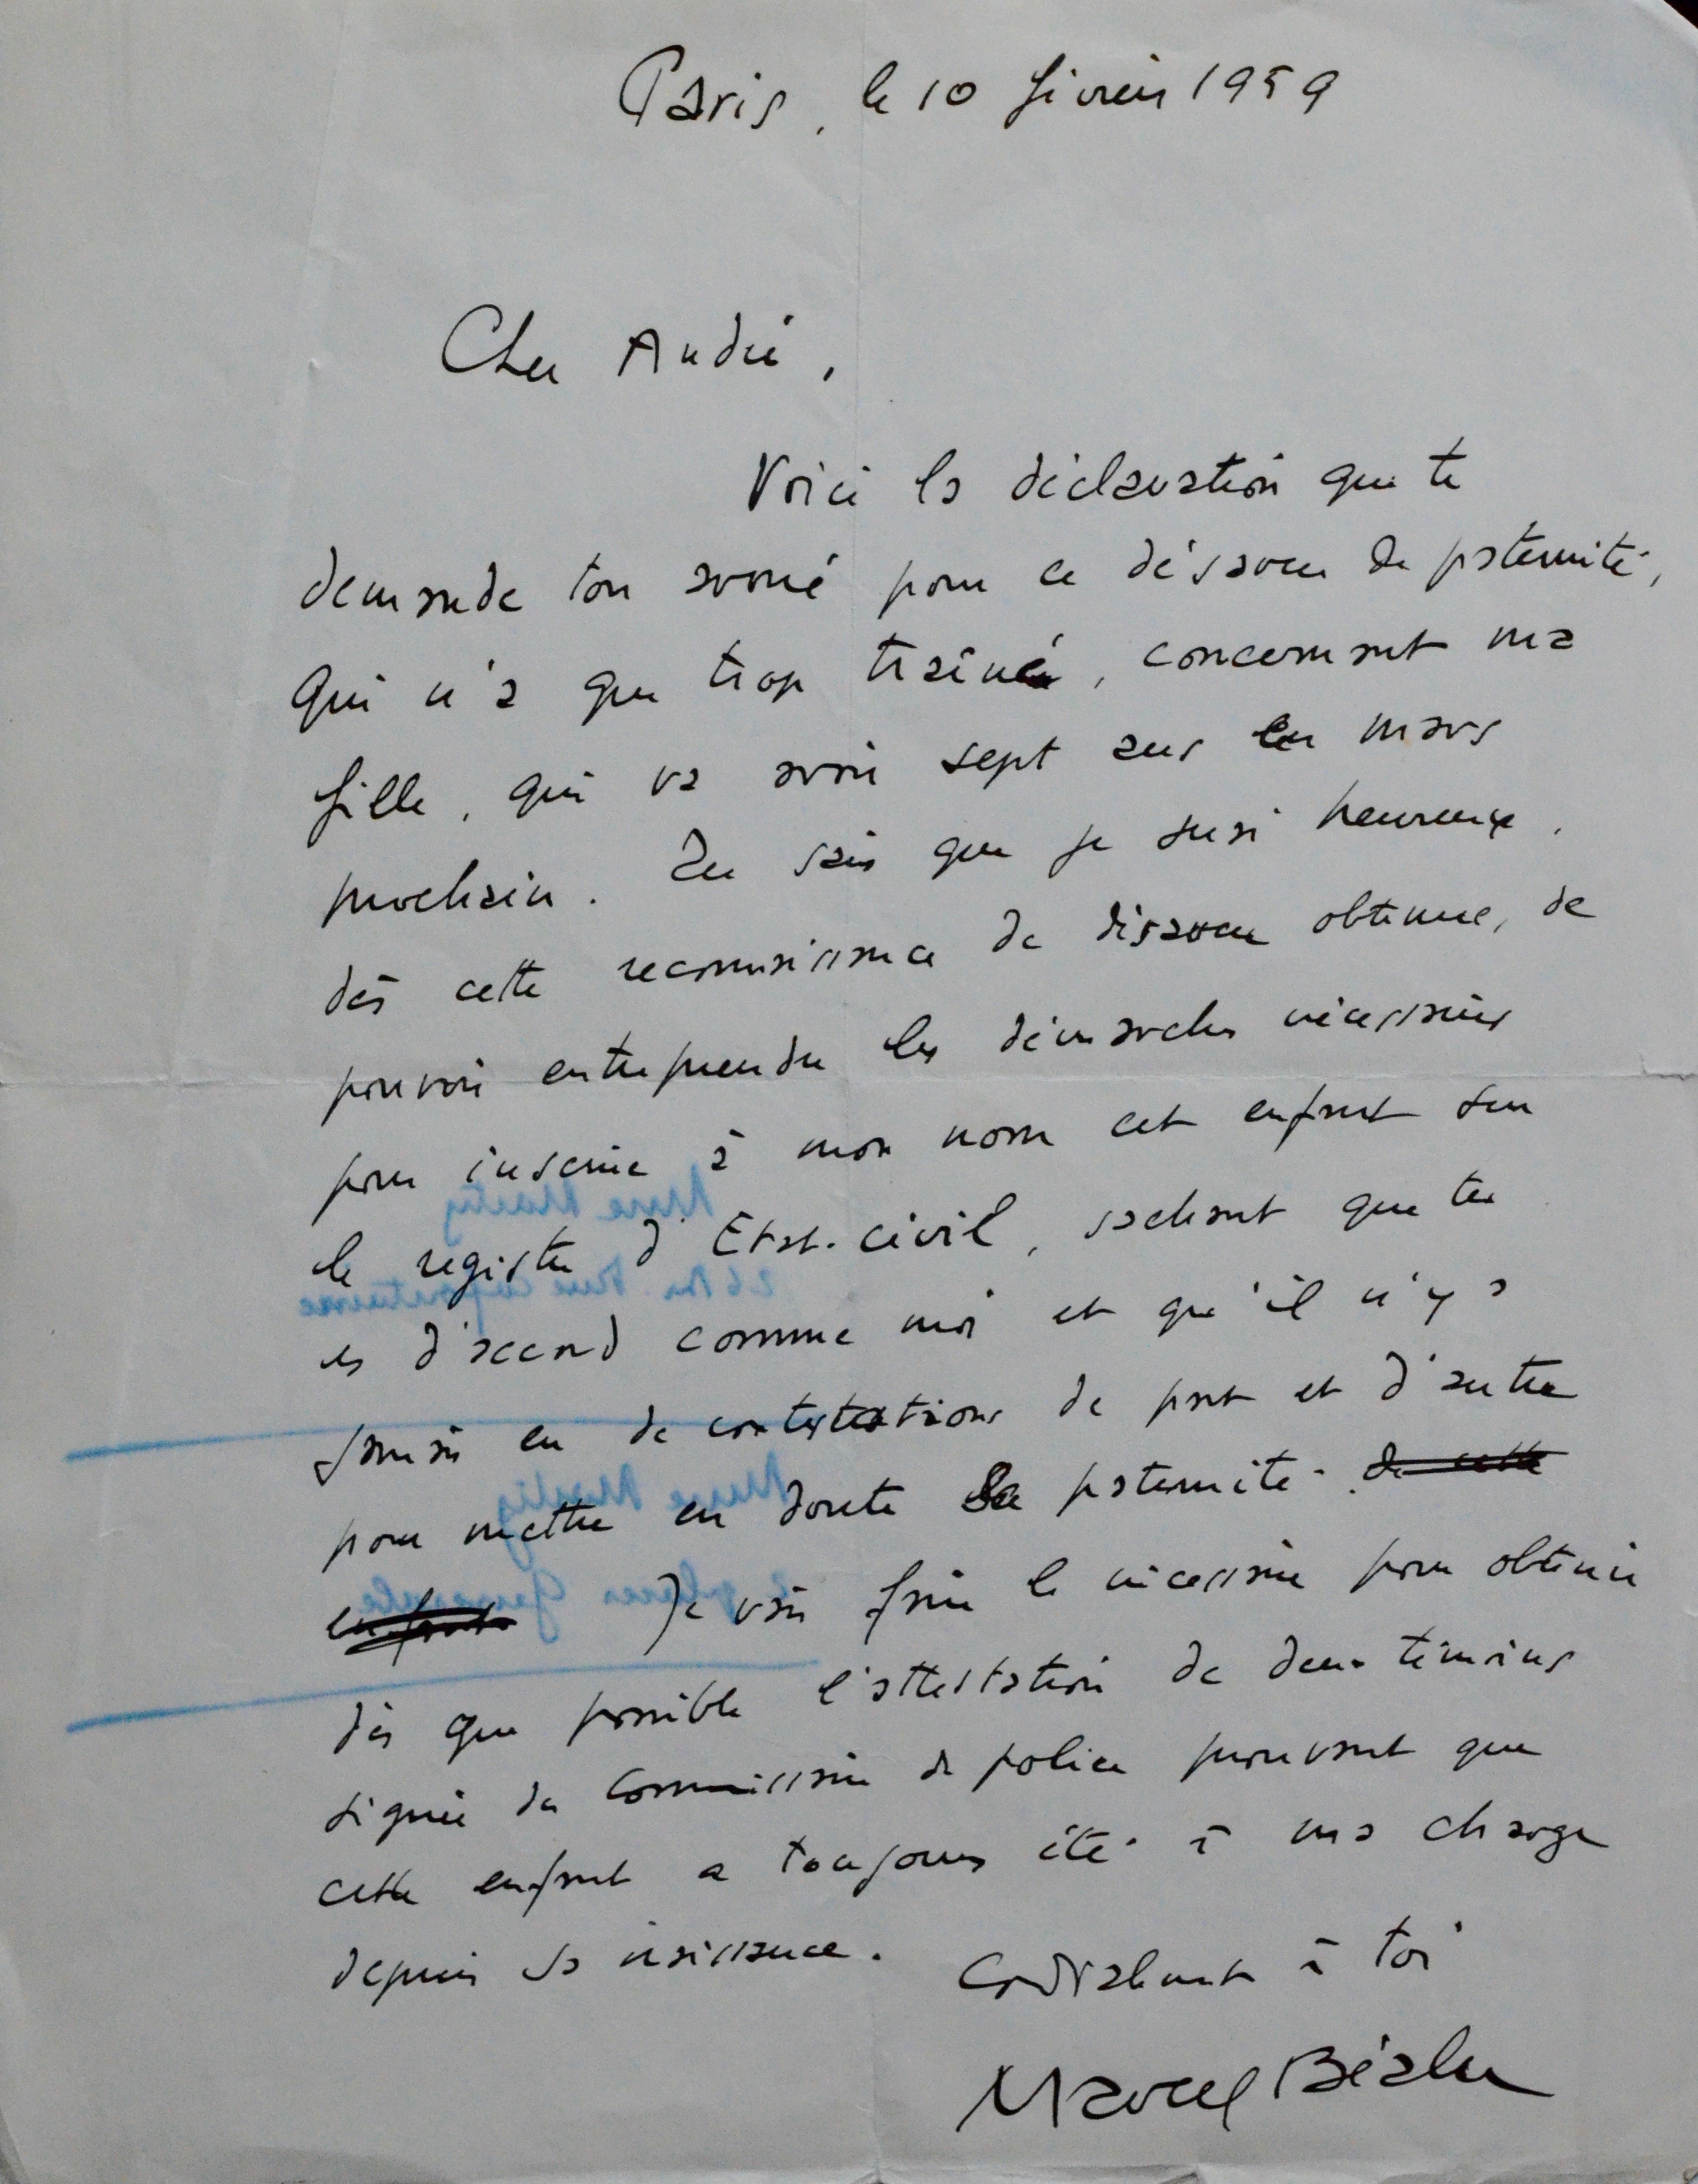 Paris, le 10 février 1959
Cher André,
Voici la déclaration que te
demande ton avoué pour ce désaveu de paternité,
qui n'a que trop traîné, concernant ma
fille, qui va avoir sept ans en mars
prochain. Tu sais que je suis heureux,
dès cette reconnaissance de désaveu obtenue, de
pouvoir entreprendre les démarches nécessaires
pour inscrire à mon nom cet enfant sur
le registre d'Etat-civil, sachant que tu
es d'accord comme moi et qu'il n'y a
jamais eu de contestations de part et d'autre
pour mettre en doute sa paternité. de cette
enfant. Je vais faire le nécessaire pour obtenir
dès que possible l'attestation de deux témoins
signée du Commissaire de police prouvant que
cette enfant a toujours été à ma charge
depuis sa naissance.
Cordialement à toi
Marcel Béalu